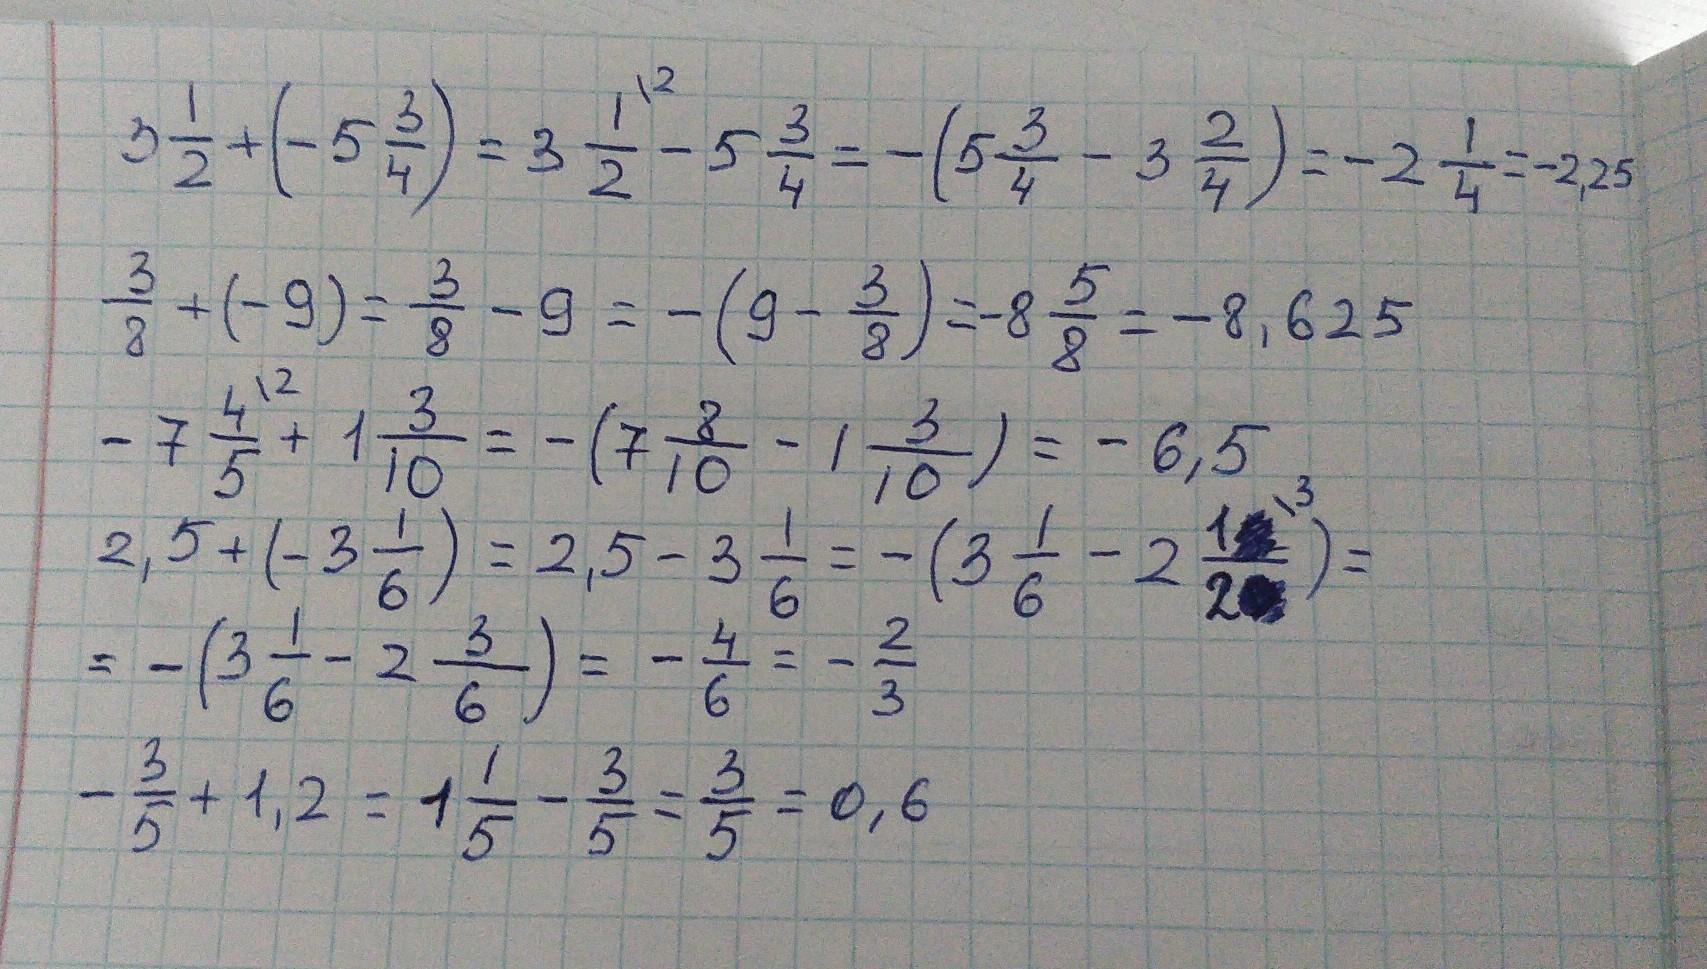 3 1/2 + (-5 3/4) = 3 1/2 \2 - 5 3/4 = -(5 3/4 - 3 2/4) = -2 1/4 = -2,25
3/8 + (-9) = 3/8 - 9 = -(9 - 3/8) = -8 5/8 = -8,625
-7 4/5 \2 + 1 3/10 = -(7 8/10 - 1 3/10) = -6,5
2,5 + (-3 1/6) = 2,5 - 3 1/6 = -(3 1/6 - 2 1/2 \3) =
= -(3 1/6 - 2 3/6) = -4/6 = -2/3
-3/5 + 1,2 = 1 1/5 - 3/5 = 3/5 = 0,6